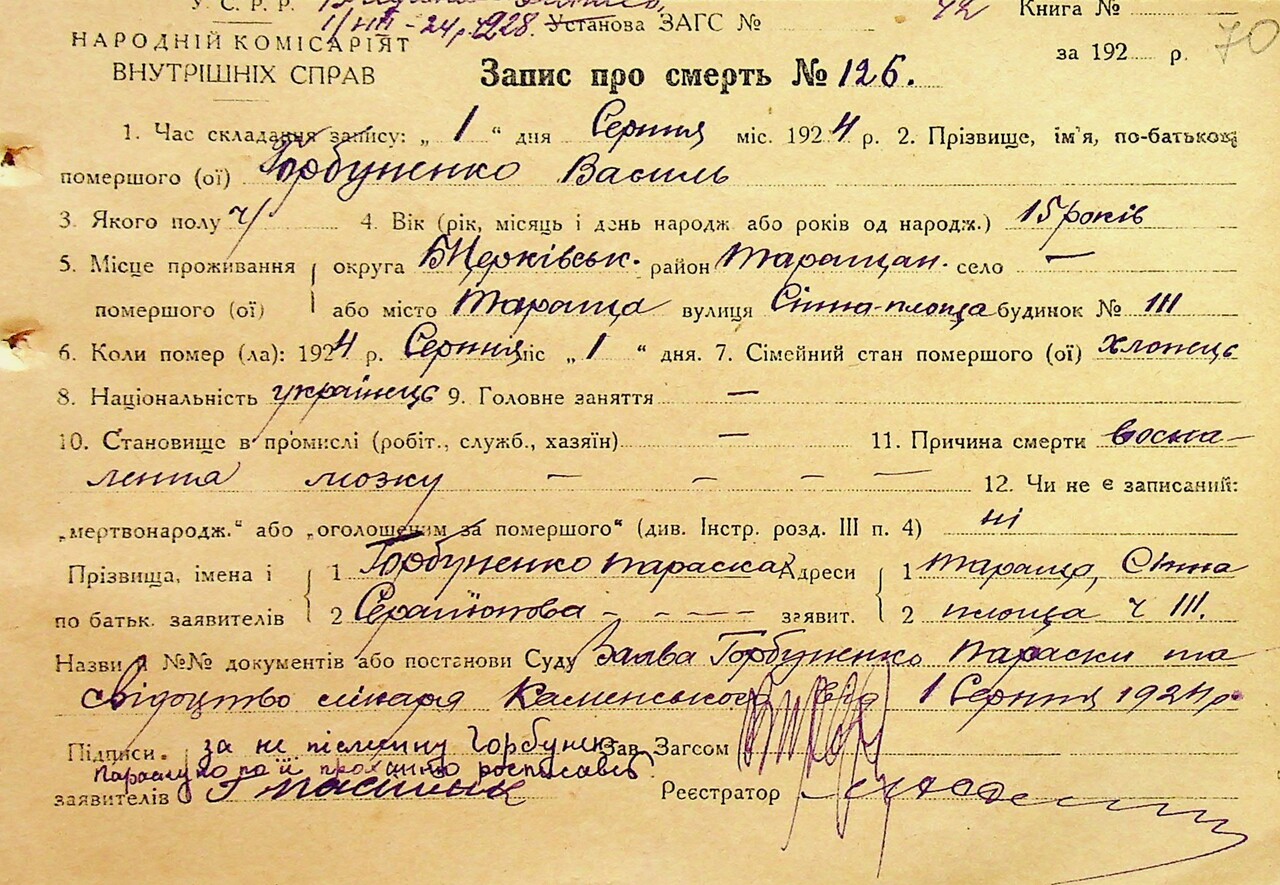 У. С. Р. Р.
1/VIII - 24 р. 1928. Установа ЗАГС № 42 Книга №
НАРОДНІЙ КОМІСАРІЯТ
ВНУТРІШНІХ СПРАВ
за 192 р. 70
Запис про смерть № 126.
1. Час складання запису: „ 1 “ дня Серпня міс. 1924 р. 2. Прізвище, ім'я, по-батькові
помершого (ої) Горбуненко Василь
3. Якого полу ч/ 4. Вік (рік, місяць і день народж або років од народж.) 15 років
5. Місце проживання округа БЦерківськ. район Таращан. село —
помершого (ої) або місто Тараща вулиця Сінна-площа будинок № III
6. Коли помер (ла): 1924 р. Серпня міс „ 1 “ дня. 7. Сімейний стан помершого (ої) хлопець
8. Національність українець 9. Головне заняття —
10. Становище в промислі (робіт., служб., хазяїн) — 11. Причина смерти воспа-
лення мозку — — — —
12. Чи не є записаний:
„мертвонародж.“ або „оголошеним за помершого“ (див. Інстр. розд. III п. 4) ні
Прізвища, імена і 1 Горбуненко Параска Адреси 1 Тараща, Сінна
по батьк. заявителів 2 Серапіонова - - - - заявит. 2 площа ч III.
Назви й №№ документів або постанови Суду Заява Горбуненко Параски та
свідоцтво лікаря Каменського від 1 Серпня 1924 р.
Підписи за не письмену Горбуненко Зав. Загсом
Параску по її проханню росписавсь
заявителів Реєстратор